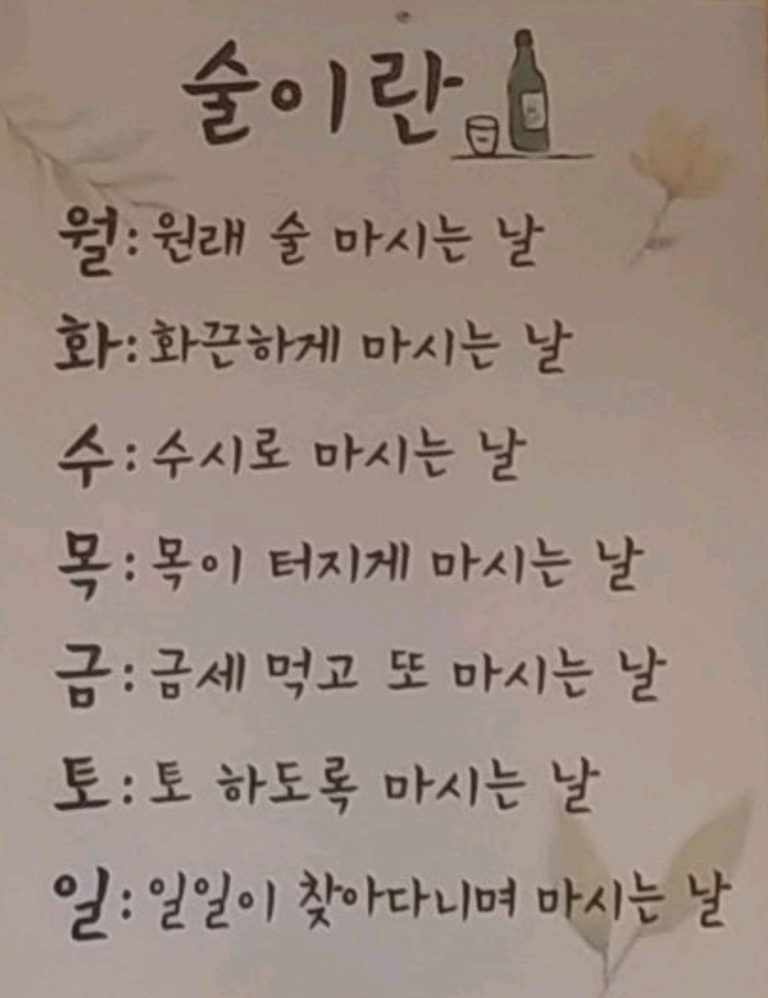 술이란
월: 원래 술 마시는 날
화: 화끈하게 마시는 날
수: 수시로 마시는 날
목: 목이 터지게 마시는 날
금: 금세 먹고 또 마시는 날
토: 토 하도록 마시는 날
일: 일일이 찾아다니며 마시는 날